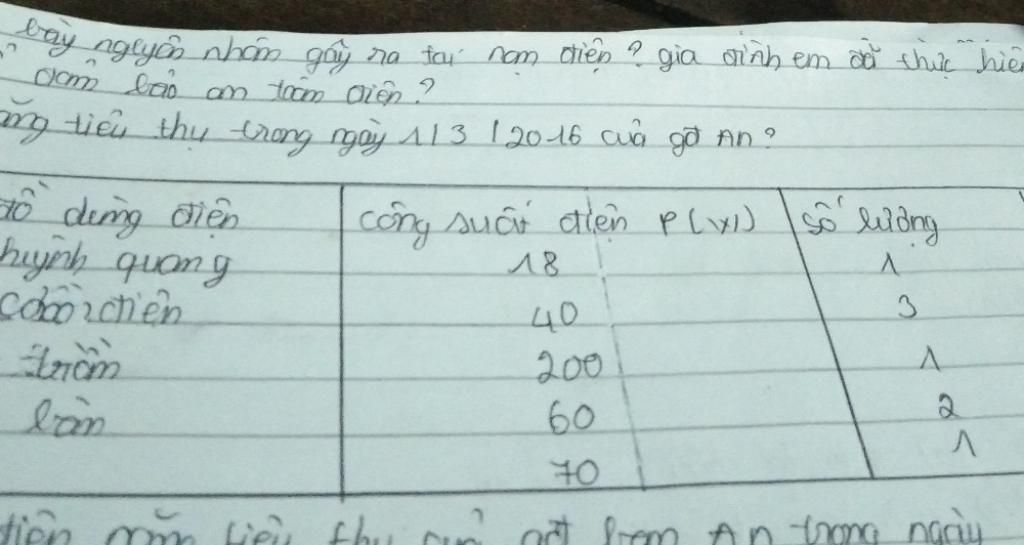 bày nguyên nhân gây ra tai nạn điện? gia đình em đã thực hiện
đảm bảo an toàn điện?
ăng tiêu thụ trong ngày 1/3/2016 của gđ An?
đồ dùng điện công suất điện P(W) Số lượng
huỳnh quang 18 1
điện 40 3
trần 200 1
bàn 60 2
70 1
điện năng tiêu thụ của gđ bạn An trong ngày